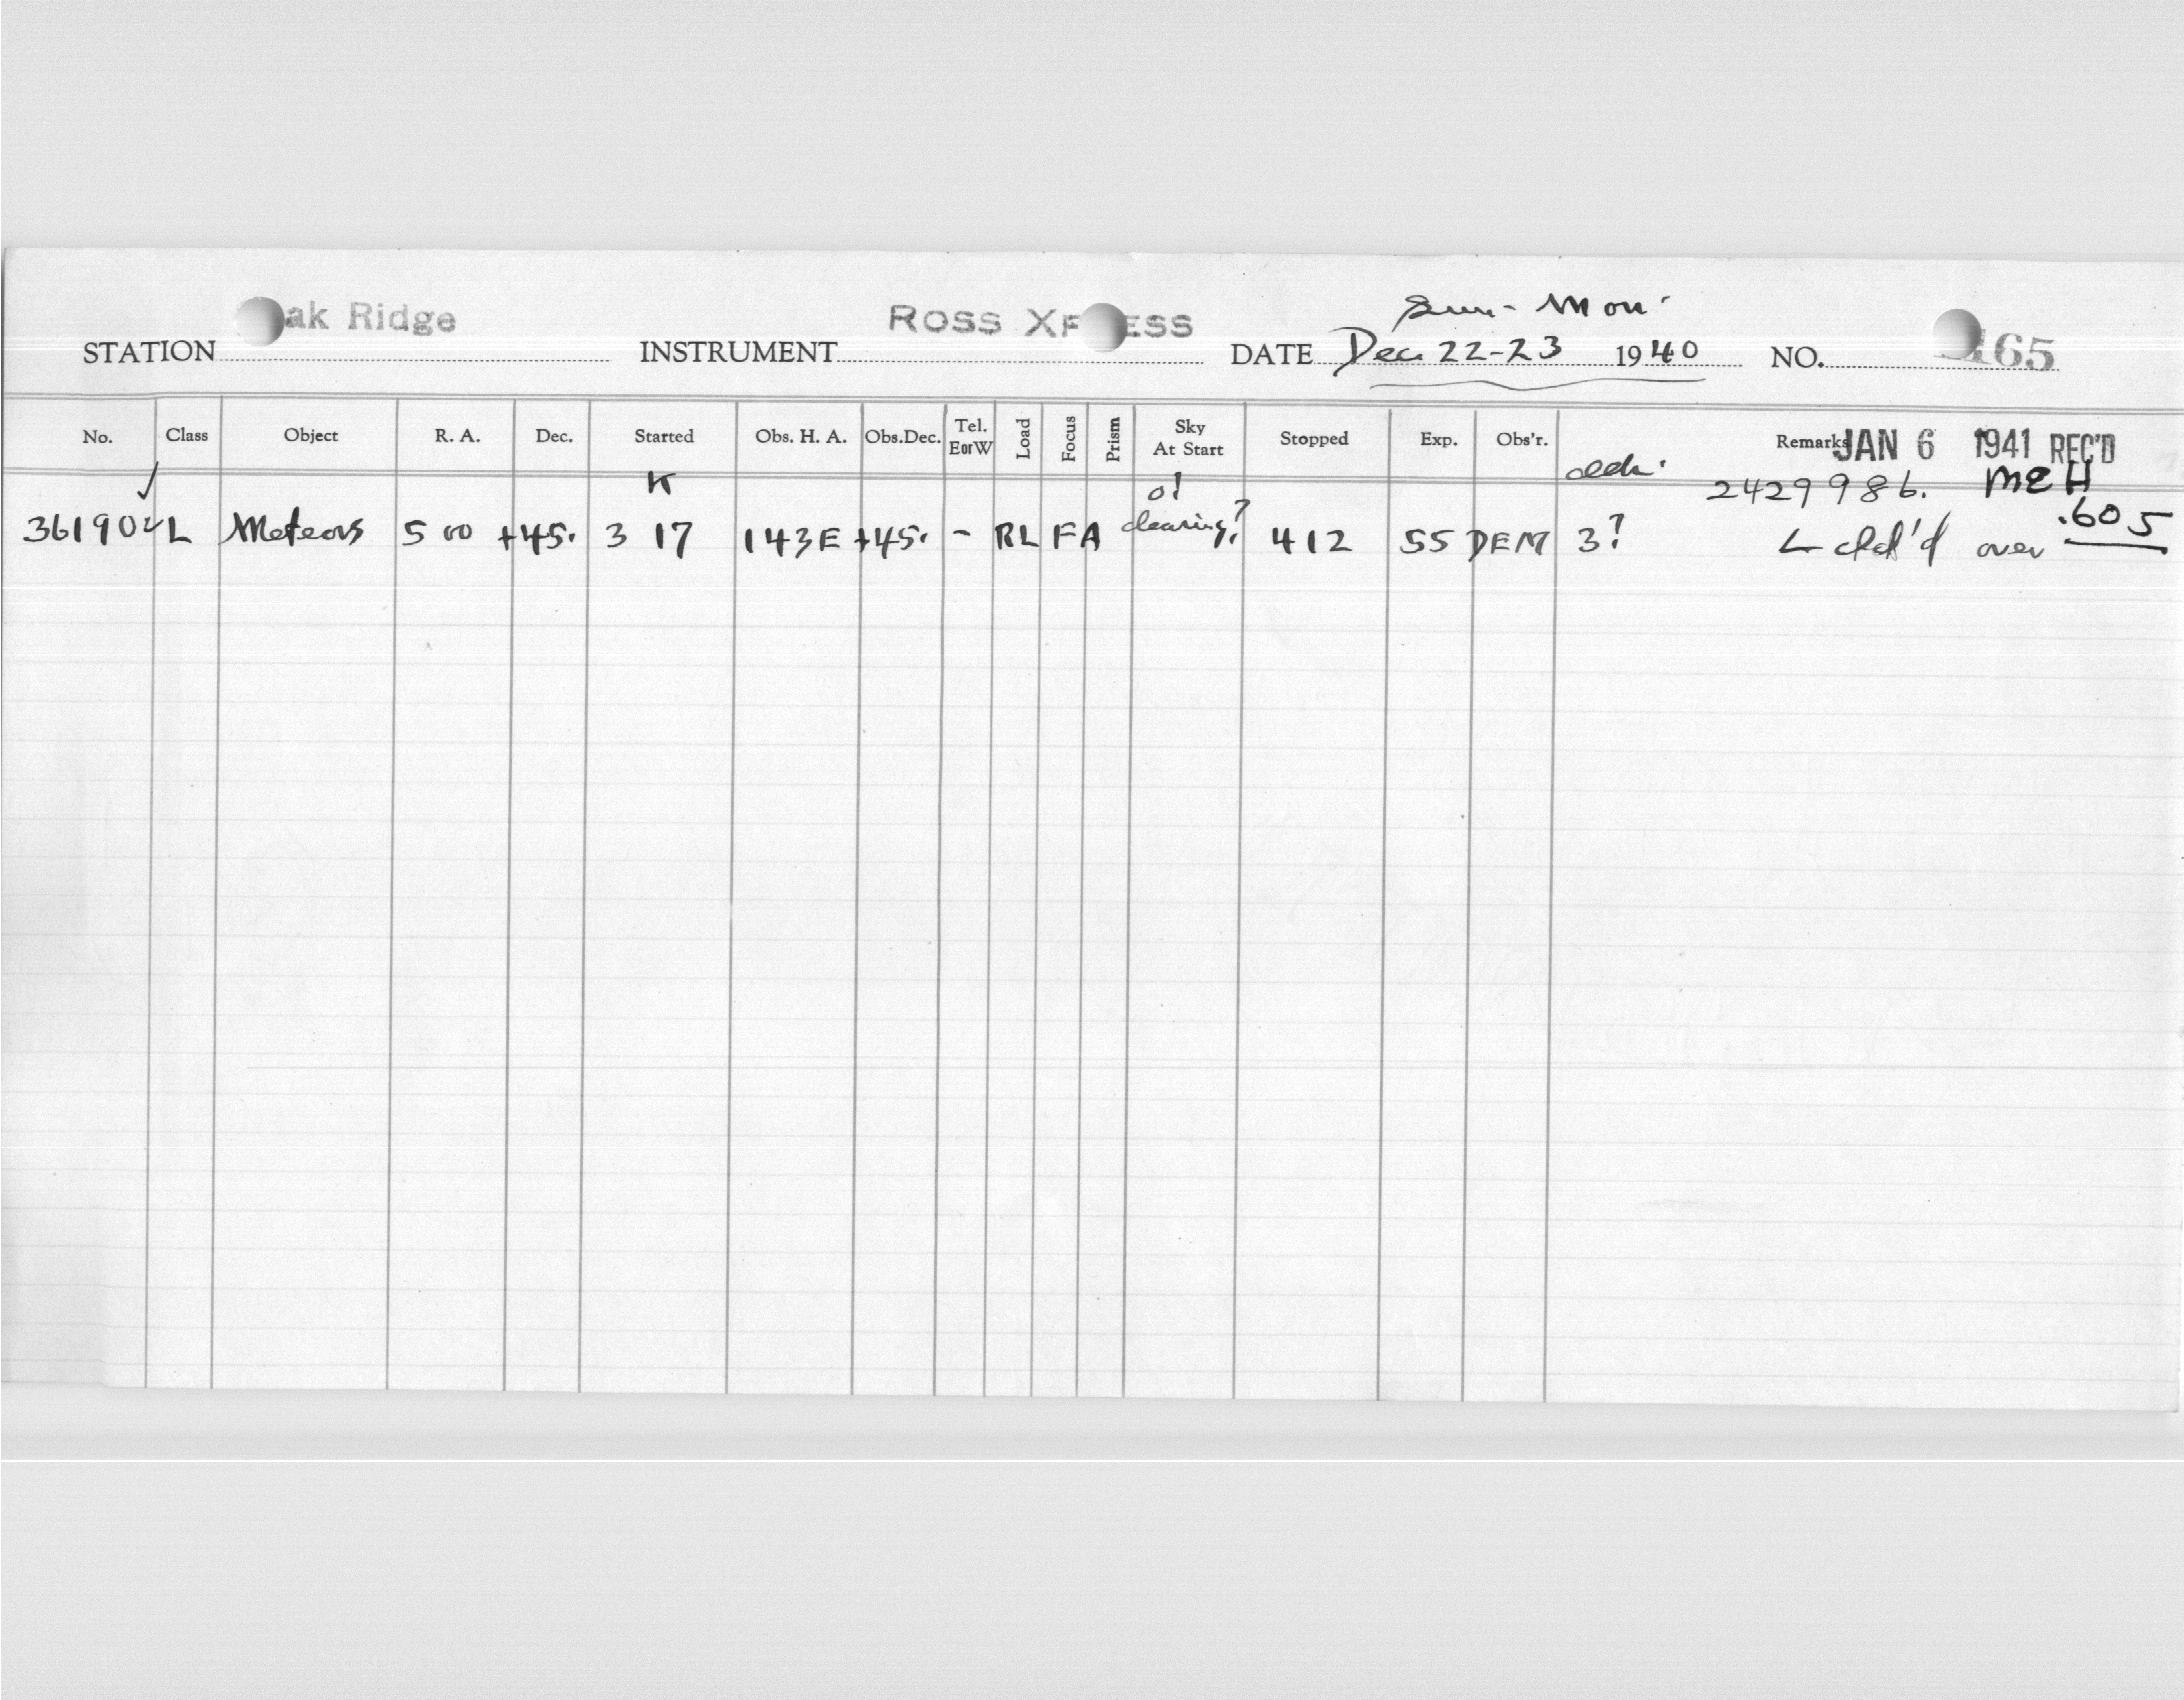 ak Ridge ROSS XP ESS Sun - Mon
STATION INSTRUMENT DATE Dec 22-23 1940 NO. 165
No. Class Object R. A. Dec. Started Obs. H. A. Obs.Dec. Tel. EorW Load Focus Prism Sky At Start Stopped Exp. Obs'r. Remarks JAN 6 1941 REC'D
K 2429986. MEH
36190 L Meteors 5 00 +45. 3 17 143E +45. - RL F A clearing? 412 55 DEM 3? cld'd over .605